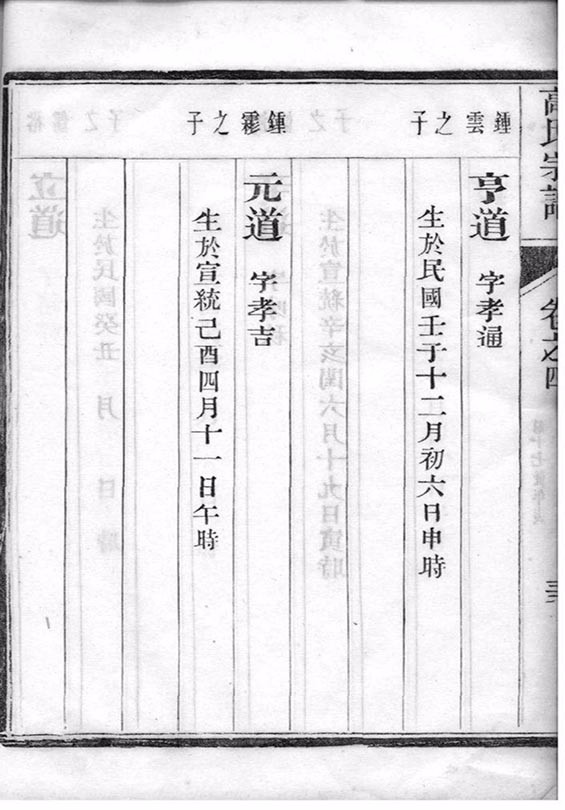 高氏宗譜
卷之四
鍾雲之子
亨道 字孝通
生於民國壬子十二月初六日申時
鍾霖之子
元道 字孝吉
生於宣統己酉四月十一日午時